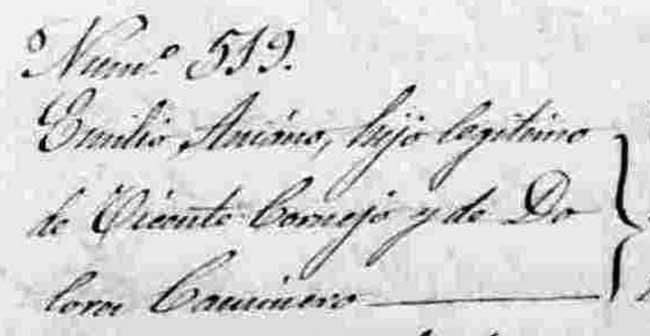 Num.º 519.
Emilio Aniano, hijo legitimo
de Vicente Cornejo y de Do
lores Caminero